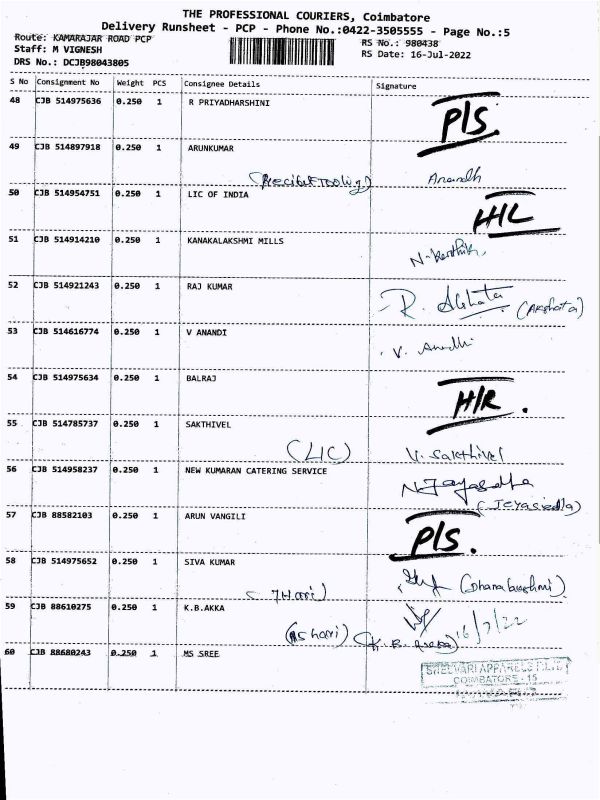 THE PROFESSIONAL COURIERS, Coimbatore
Delivery Runsheet - PCP - Phone No.:0422-3505555 - Page No.:5
Route: KAMARAJAR ROAD PCP
RS No.: 980438
Staff: M VIGNESH
RS Date: 16-Jul-2022
DRS No.: DCJB98043805
S No Consignment No Weight PCS Consignee Details Signature
48 CJB 514975636 0.250 1 R PRIYADHARSHINI P/S.
49 CJB 514897918 0.250 1 ARUNKUMAR Anandh
50 CJB 514954751 0.250 1 LIC OF INDIA
51 CJB 514914210 0.250 1 KANAKALAKSHMI MILLS N. Karthik
52 CJB 514921243 0.250 1 RAJ KUMAR R. Akshata (Akshata)
53 CJB 514616774 0.250 1 V ANANDI V. Anandhi
54 CJB 514975634 0.250 1 BALRAJ H/R.
55 CJB 514785737 0.250 1 SAKTHIVEL
(LIC) V. Sakthivel
56 CJB 514958237 0.250 1 NEW KUMARAN CATERING SERVICE
57 CJB 88582103 0.250 1 ARUN VANGILI P/S.
58 CJB 514975652 0.250 1 SIVA KUMAR
59 CJB 88610275 0.250 1 K.B.AKKA
16/7/22
60 CJB 88680243 0.250 1 MS SREE
COIMBATORE - 15